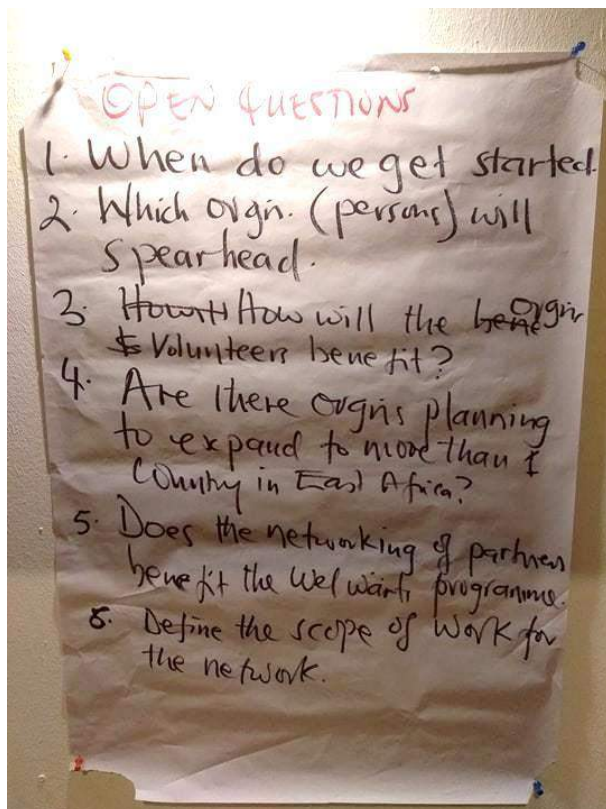 OPEN QUESTIONS
1. When do we get started.
2. Which orgn. (persons) will
spearhead.
3. How will the orgns
& Volunteers benefit?
4. Are there orgns planning
to expand to more than 1
Country in East Africa?
5. Does the networking of partners
benefit the Welwärts programme.
6. Define the scope of work for
the network.